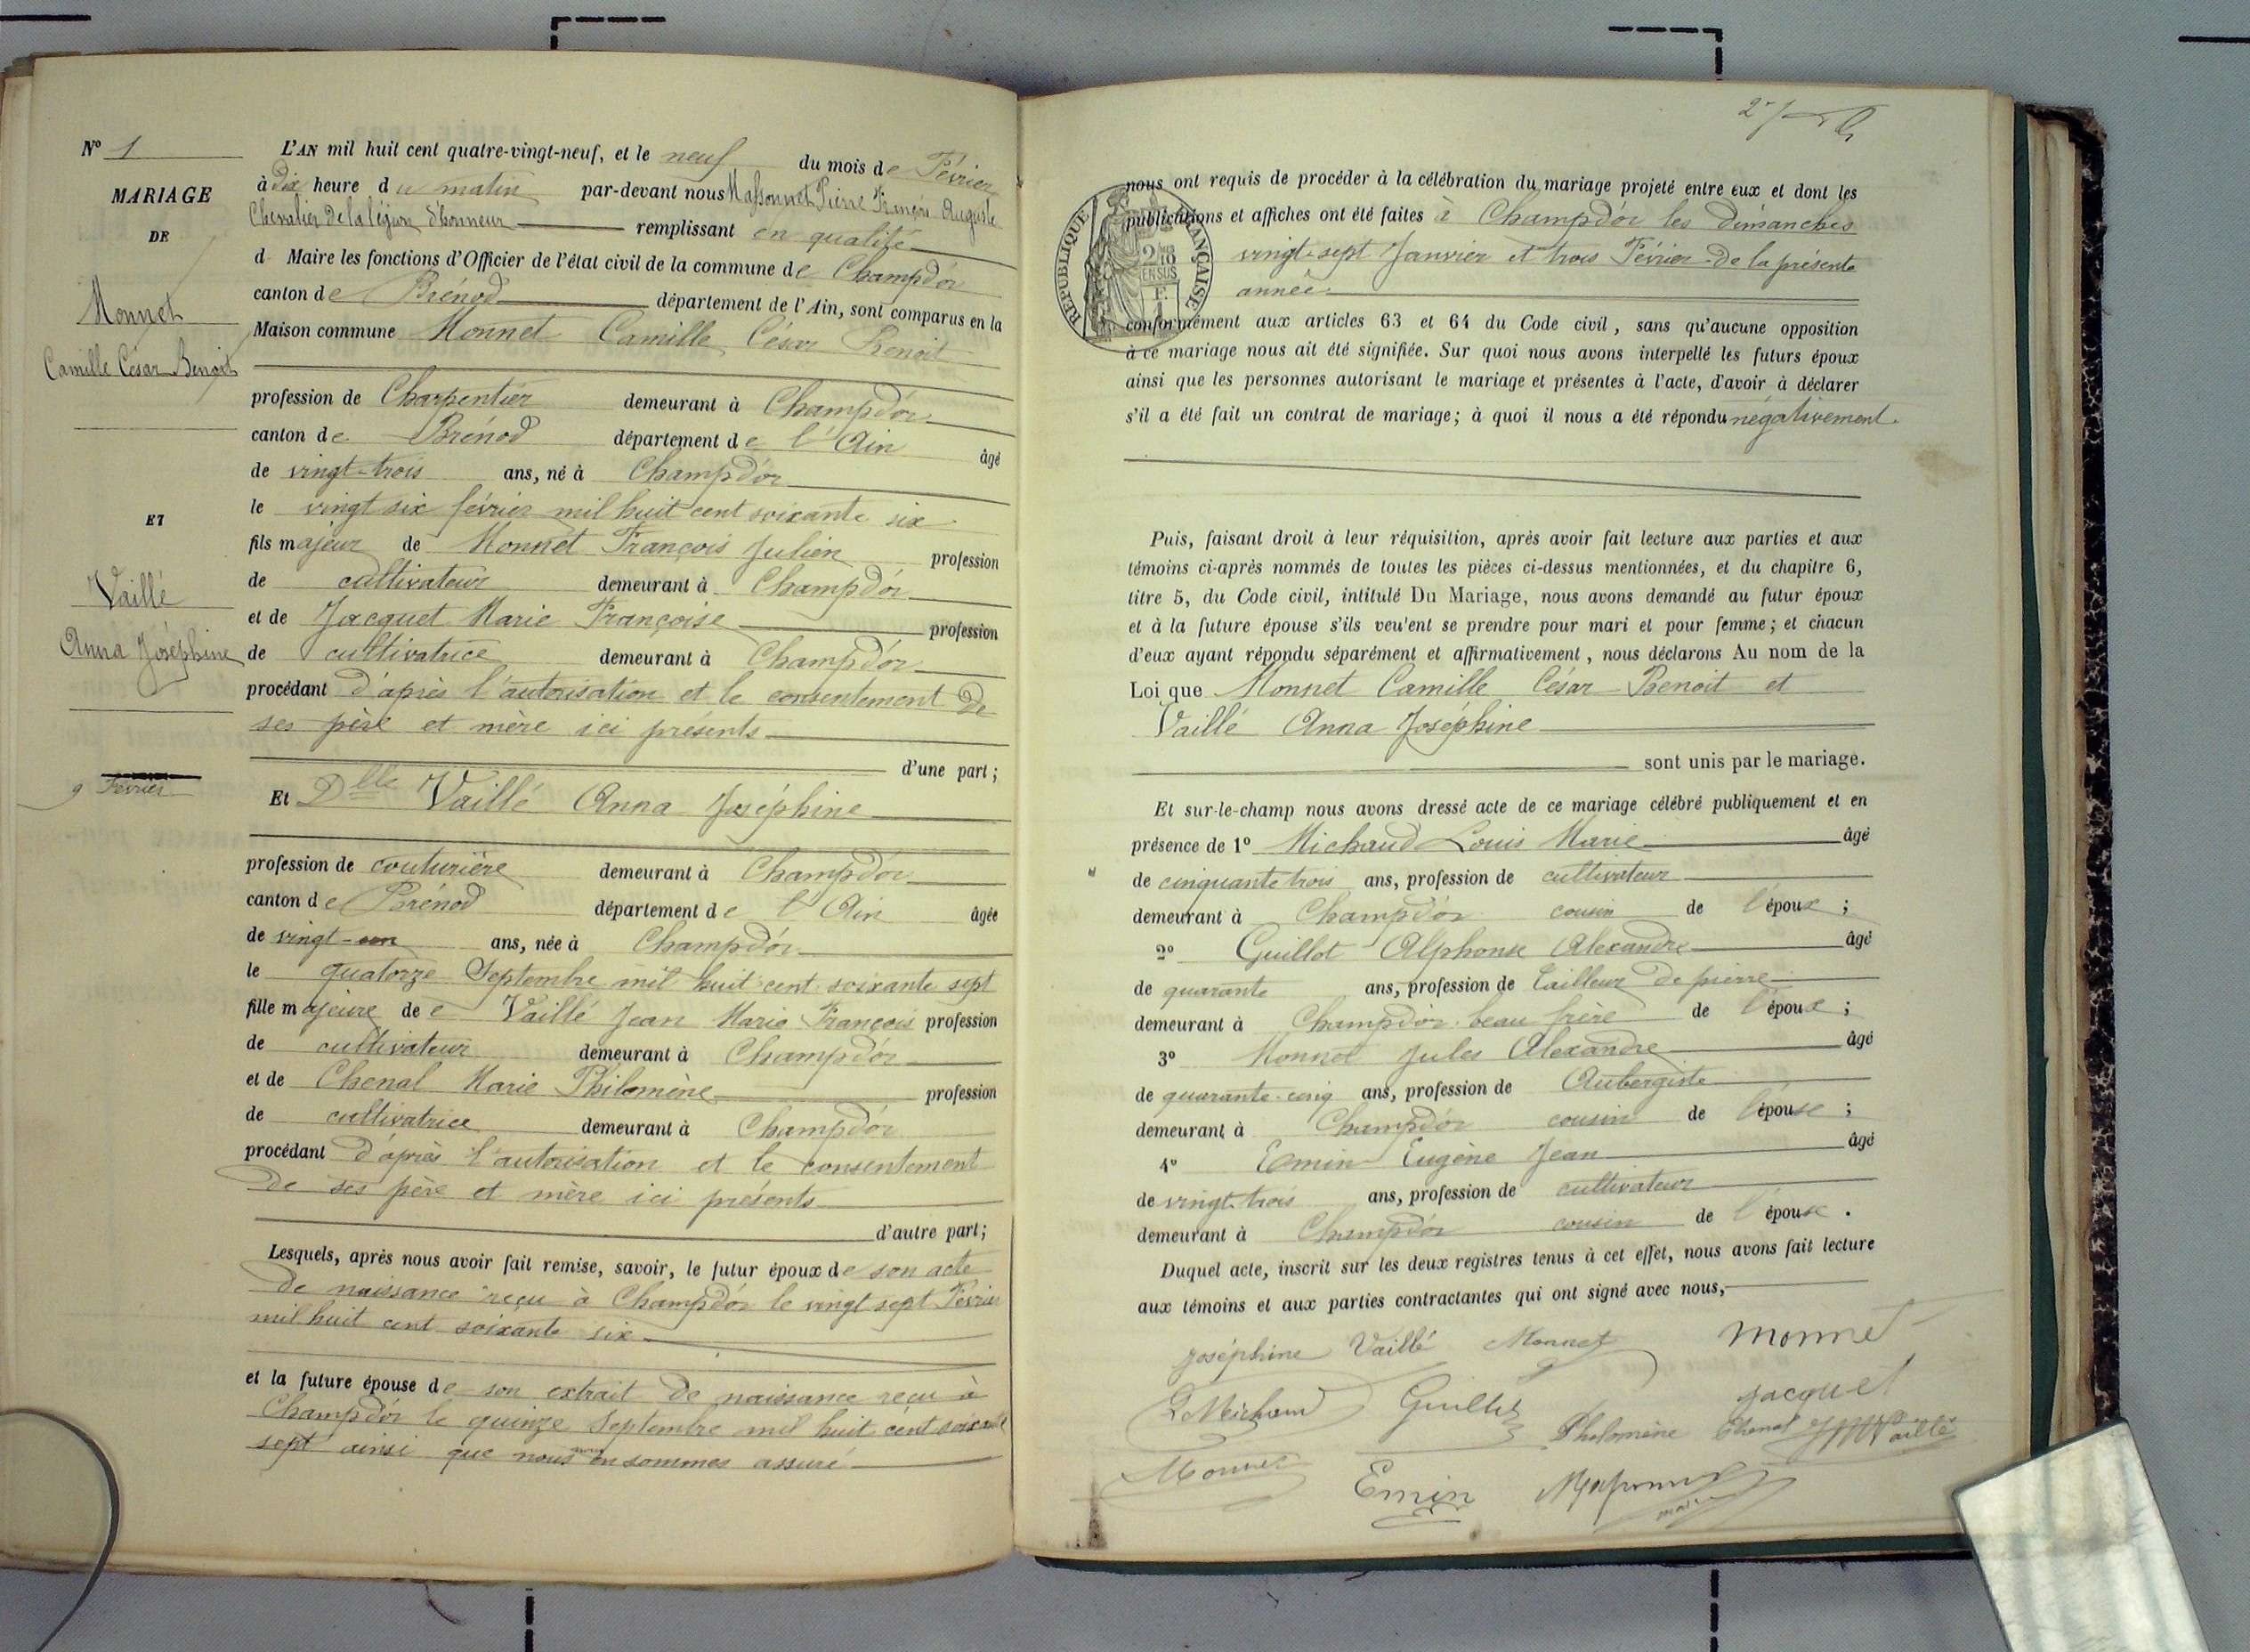 N° 1
MARIAGE
DE
Monnet
Camille César Benoit
ET
Vaillé
Anna Joséphine
9 Février
L'AN mil huit cent quatre-vingt-neuf, et le neuf du mois de Février
à dix heure du matin par-devant nous Massonnet Pierre François Auguste
Chevalier de la légion d'honneur remplissant en qualité
d Maire les fonctions d'Officier de l'état civil de la commune de Champdor
canton de Brénod département de l'Ain, sont comparus en la
Maison commune Monnet Camille César Benoit
profession de Charpentier demeurant à Champdor
canton de Brénod département de l'Ain âgé
de vingt-trois ans, né à Champdor
le vingt six février mil huit cent soixante six
fils majeur de Monnet François Julien profession
de cultivateur demeurant à Champdor
et de Jacquet Marie Françoise profession
de cultivatrice demeurant à Champdor
procédant d'après l'autorisation et le consentement de
ses père et mère ici présents
d'une part;
Et Dlle Vaillé Anna Joséphine
profession de couturière demeurant à Champdor
canton de Brénod département de l'Ain âgée
de vingt-un ans, née à Champdor
le quatorze Septembre mil huit cent soixante sept
fille majeure de e Vaillé Jean Marie François profession
de cultivateur demeurant à Champdor
et de Chenal Marie Philomène profession
de cultivatrice demeurant à Champdor
procédant d'après l'autorisation et le consentement
de ses père et mère ici présents
d'autre part;
Lesquels, après nous avoir fait remise, savoir, le futur époux de son acte
de naissance reçu à Champdor le vingt sept Février
mil huit cent soixante six
et la future épouse de son extrait de naissance reçu à
Champdor le quinze Septembre mil huit cent soixante
sept ainsi que nous nous en sommes assuré
REPUBLIQUE FRANÇAISE
2/10
EN SUS
nous ont requis de procéder à la célébration du mariage projeté entre eux et dont les
publications et affiches ont été faites à Champdor les dimanches
vingt-sept Janvier et trois Février de la présente
année
conformément aux articles 63 et 64 du Code civil, sans qu'aucune opposition
à ce mariage nous ait été signifiée. Sur quoi nous avons interpellé les futurs époux
ainsi que les personnes autorisant le mariage et présentes à l'acte, d'avoir à déclarer
s'il a été fait un contrat de mariage; à quoi il nous a été répondu négativement.
Puis, faisant droit à leur réquisition, après avoir fait lecture aux parties et aux
témoins ci-après nommés de toutes les pièces ci-dessus mentionnées, et du chapitre 6,
titre 5, du Code civil, intitulé Du Mariage, nous avons demandé au futur époux
et à la future épouse s'ils veu'ent se prendre pour mari et pour femme; et chacun
d'eux ayant répondu séparément et affirmativement, nous déclarons Au nom de la
Loi que Monnet Camille César Benoit et
Vaillé Anna Joséphine
sont unis par le mariage.
Et sur-le-champ nous avons dressé acte de ce mariage célébré publiquement et en
présence de 1° Michaud Louis Marie âgé
de cinquante trois ans, profession de cultivateur
demeurant à Champdor cousin de l'époux;
2° Guillot Alphonse Alexandre âgé
de quarante ans, profession de tailleur de pierre
demeurant à Champdor beau frère de l'époux;
3° Monnet Jules Alexandre âgé
de quarante-cinq ans, profession de Aubergiste
demeurant à Champdor cousin de l'épouse;
4° Emin Eugène Jean âgé
de vingt-trois ans, profession de cultivateur
demeurant à Champdor cousin de l'épouse.
Duquel acte, inscrit sur les deux registres tenus à cet effet, nous avons fait lecture
aux témoins et aux parties contractantes qui ont signé avec nous,
Joséphine Vaillé Monnet Monnet
L Michaud Guillot Jacquet
Philomène Chenal JM Vaillé
Monnet Emin Massonnet
maire